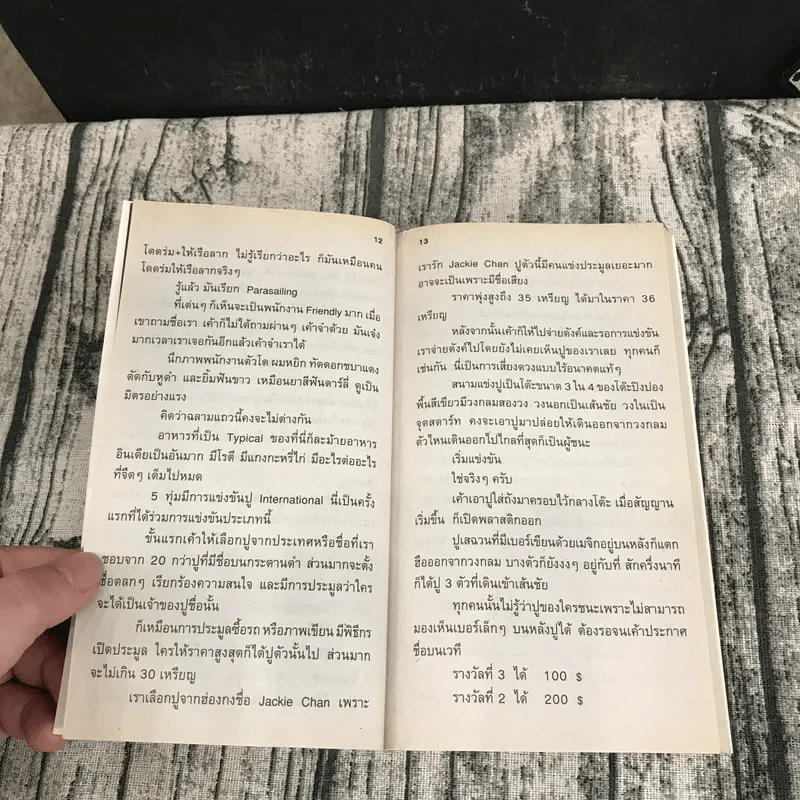 12
โดดร่ม+ให้เรือลาก ไม่รู้เรียกว่าอะไร ก็มันเหมือนคน
โดดร่มให้เรือลากจริงๆ
รู้แล้ว มันเรียก Parasailing
ที่เด่นๆ ก็เห็นจะเป็นพนักงาน Friendly มาก เมื่อ
เขาถามชื่อเรา เค้าก็ไม่ได้ถามผ่านๆ เค้าจำด้วย มันเจ๋ง
มากเวลาเราเจอกันอีกแล้วเค้าจำเราได้
นึกภาพพนักงานตัวโต ผมหยิก ทัดดอกชบาแดง
ตัดกับหูดำ และยิ้มฟันขาว เหมือนยาสีฟันดาร์ลี่ ดูเป็น
มิตรอย่างแรง
คิดว่าฉลามแถวนี้คงจะไม่ต่างกัน
อาหารที่เป็น Typical ของที่นี่ก็ละม้ายอาหาร
อินเดียเป็นอันมาก มีโรตี มีแกงกะหรี่ไก่ มีอะไรต่ออะไร
ที่จืดๆ เต็มไปหมด
5 ทุ่มมีการแข่งขันปู International นี่เป็นครั้ง
แรกที่ได้ร่วมการแข่งขันประเภทนี้
ขั้นแรกเค้าให้เลือกปูจากประเทศหรือชื่อที่เรา
ชอบจาก 20 กว่าปูที่มีชื่อบนกระดานดำ ส่วนมากจะตั้ง
ชื่อตลกๆ เรียกร้องความสนใจ และมีการประมูลว่าใคร
จะได้เป็นเจ้าของปูชื่อนั้น
ก็เหมือนการประมูลซื้อรถ หรือภาพเขียน มีพิธีกร
เปิดประมูล ใครให้ราคาสูงสุดก็ได้ปูตัวนั้นไป ส่วนมาก
จะไม่เกิน 30 เหรียญ
เราเลือกปูจากฮ่องกงชื่อ Jackie Chan เพราะ
13
เรารัก Jackie Chan ปูตัวนี้มีคนแข่งประมูลเยอะมาก
อาจจะเป็นเพราะมีชื่อเสียง
ราคาพุ่งสูงถึง 35 เหรียญ ได้มาในราคา 36
เหรียญ
หลังจากนั้นเค้าก็ให้ไปจ่ายตังค์และรอการแข่งขัน
เราจ่ายตังค์ไปโดยยังไม่เคยเห็นปูของเราเลย ทุกคนก็
เช่นกัน นี่เป็นการเสี่ยงดวงแบบไร้อนาคตแท้ๆ
สนามแข่งปูเป็นโต๊ะขนาด 3 ใน 4 ของโต๊ะปิงปอง
พื้นสีเขียวมีวงกลมสองวง วงนอกเป็นเส้นชัย วงในเป็น
จุดสตาร์ท คงจะเอาปูมาปล่อยให้เดินออกจากวงกลม
ตัวไหนเดินออกไปไกลที่สุดก็เป็นผู้ชนะ
เริ่มแข่งขัน
ใช่จริงๆ ครับ
เค้าเอาปูใส่ถังมาครอบไว้กลางโต๊ะ เมื่อสัญญาน
เริ่มขึ้น ก็เปิดพลาสติกออก
ปูเสฉวนที่มีเบอร์เขียนด้วยเมจิกอยู่บนหลังก็แตก
ฮือออกจากวงกลม บางตัวก็ยังงงๆ อยู่กับที่ สักครึ่งนาที
ก็ได้ปู 3 ตัวที่เดินเข้าเส้นชัย
ทุกคนนั้นไม่รู้ว่าปูของใครชนะเพราะไม่สามารถ
มองเห็นเบอร์เล็กๆ บนหลังปูได้ ต้องรอจนเค้าประกาศ
ชื่อบนเวที
รางวัลที่ 3 ได้ 100 $
รางวัลที่ 2 ได้ 200 $